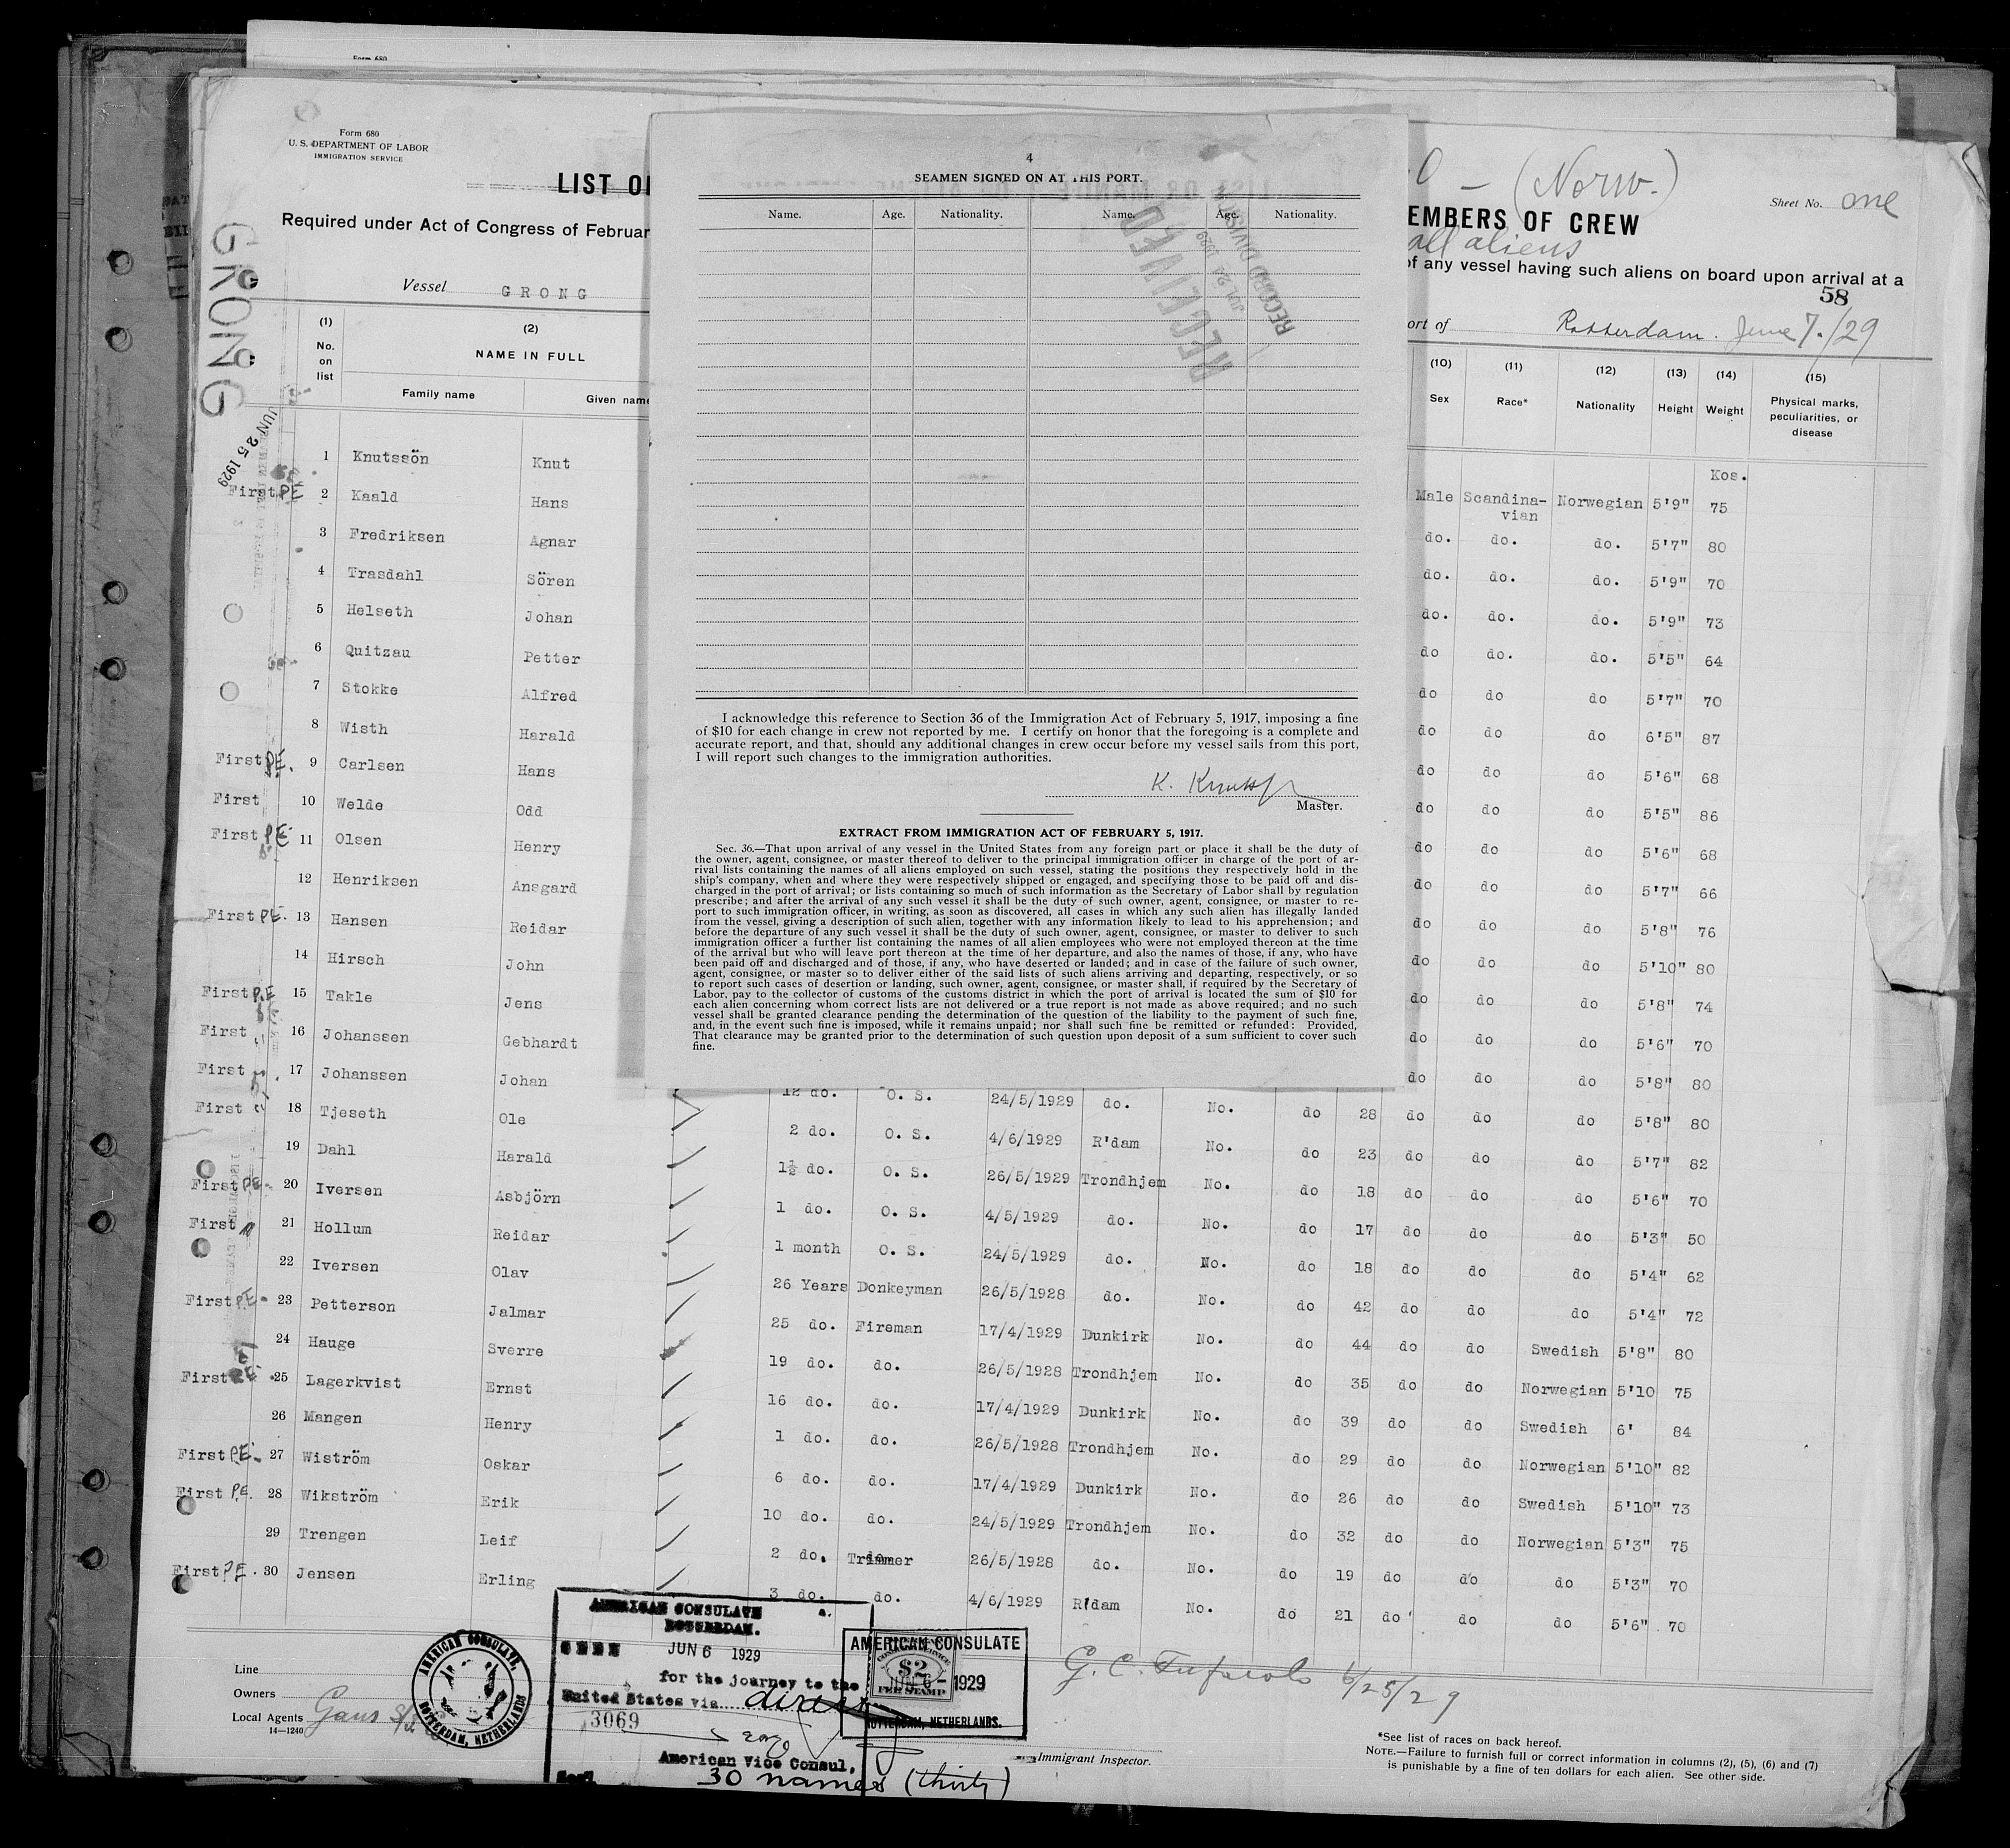 Form 680
Form 680
U. S. DEPARTMENT OF LABOR
IMMIGRATION SERVICE
LIST OF
Required under Act of Congress of Februar
Vessel GRONG
GRONG
JUN 25 1929
(1) (2)
No. on list
NAME IN FULL
Family name Given name
1 Knutssön Knut
First PE 2 Kaald Hans
3 Fredriksen Agnar
4 Trasdahl Sören
5 Helseth Johan
6 Quitzau Petter
7 Stokke Alfred
8 Wisth Harald
First PE. 9 Carlsen Hans
First 10 Welde Odd
First PE 11 Olsen Henry
12 Henriksen Ansgard
First PE. 13 Hansen Reidar
14 Hirsch John
First P.E 15 Takle Jens
First " 16 Johanssen Gebhardt
First 17 Johanssen Johan
First 18 Tjeseth Ole
19 Dahl Harald
First PE- 20 Iversen Asbjörn
First " 21 Hollum Reidar
22 Iversen Olav
First PE- 23 Petterson Jalmar
24 Hauge Sverre
First PE 25 Lagerkvist Ernst
26 Mangen Henry
First PE- 27 Wiström Oskar
First P.E. 28 Wikström Erik
29 Trengen Leif
First PE. 30 Jensen Erling
4
SEAMEN SIGNED ON AT THIS PORT.
Name. Age. Nationality. Name. Age. Nationality.
RECEIVED
JUL 24 1929
RECORD DIVISION
I acknowledge this reference to Section 36 of the Immigration Act of February 5, 1917, imposing a fine
of $10 for each change in crew not reported by me. I certify on honor that the foregoing is a complete and
accurate report, and that, should any additional changes in crew occur before my vessel sails from this port,
I will report such changes to the immigration authorities.
K. Knutss
Master.
EXTRACT FROM IMMIGRATION ACT OF FEBRUARY 5, 1917.
Sec. 36.—That upon arrival of any vessel in the United States from any foreign part or place it shall be the duty of
the owner, agent, consignee, or master thereof to deliver to the principal immigration officer in charge of the port of ar-
rival lists containing the names of all aliens employed on such vessel, stating the positions they respectively hold in the
ship's company, when and where they were respectively shipped or engaged, and specifying those to be paid off and dis-
charged in the port of arrival; or lists containing so much of such information as the Secretary of Labor shall by regulation
prescribe; and after the arrival of any such vessel it shall be the duty of such owner, agent, consignee, or master to re-
port to such immigration officer, in writing, as soon as discovered, all cases in which any such alien has illegally landed
from the vessel, giving a description of such alien, together with any information likely to lead to his apprehension; and
before the departure of any such vessel it shall be the duty of such owner, agent, consignee, or master to deliver to such
immigration officer a further list containing the names of all alien employees who were not employed thereon at the time
of the arrival but who will leave port thereon at the time of her departure, and also the names of those, if any, who have
been paid off and discharged and of those, if any, who have deserted or landed; and in case of the failure of such owner,
agent, consignee, or master so to deliver either of the said lists of such aliens arriving and departing, respectively, or so
to report such cases of desertion or landing, such owner, agent, consignee, or master shall, if required by the Secretary of
Labor, pay to the collector of customs of the customs district in which the port of arrival is located the sum of $10 for
each alien concerning whom correct lists are not delivered or a true report is not made as above required; and no such
vessel shall be granted clearance pending the determination of the question of the liability to the payment of such fine,
and, in the event such fine is imposed, while it remains unpaid; nor shall such fine be remitted or refunded: Provided,
That clearance may be granted prior to the determination of such question upon deposit of a sum sufficient to cover such
fine.
O — (Norw.)
Sheet No. one
EMBERS OF CREW
all aliens
of any vessel having such aliens on board upon arrival at a
58
ort of Rotterdam. June 7./29
(10) (11) (12) (13) (14) (15)
Sex Race* Nationality Height Weight Physical marks, peculiarities, or disease
Kos.
Male Scandina-vian Norwegian 5'9" 75
do. do. do. 5'7" 80
do. do. do. 5'9" 70
do. do. do. 5'9" 73
do do. do. 5'5" 64
do do do 5'7" 70
do do do 6'5" 87
do do do 5'6" 68
do do do 5'5" 86
do do do 5'6" 68
do do do 5'7" 66
do do do 5'8" 76
do do do 5'10" 80
do do do 5'8" 74
do do do 5'6" 70
do do do 5'8" 80
12 do. O. S. 24/5/1929 do. No. do 28 do do do 5'8" 80
2 do. O. S. 4/6/1929 R'dam No. do 23 do do do 5'7" 82
1½ do. O. S. 26/5/1929 Trondhjem No. do 18 do do do 5'6" 70
1 do. O. S. 4/5/1929 do. No. do 17 do do do 5'3" 50
1 month O. S. 24/5/1929 do. No. do 18 do do do 5'4" 62
26 Years Donkeyman 26/5/1928 do. No. do 42 do do do 5'4" 72
25 do. Fireman 17/4/1929 Dunkirk No. do 44 do do Swedish 5'8" 80
19 do. do. 26/5/1928 Trondhjem No. do 35 do do Norwegian 5'10 75
16 do. do. 17/4/1929 Dunkirk No. do 39 do do Swedish 6' 84
1 do. do. 26/5/1928 Trondhjem No. do 29 do do Norwegian 5'10" 82
6 do. do. 17/4/1929 Dunkirk No. do 26 do do Swedish 5'10" 73
10 do. do. 24/5/1929 Trondhjem No. do 32 do do Norwegian 5'3" 75
2 do. Trimmer 26/5/1928 do. No. do 19 do do do 5'3" 70
3 do. do. 4/6/1929 R'dam No. do 21 do do do 5'6" 70
Line
Owners
Local Agents Gans
14—1240
AMERICAN CONSULATE, ROTTERDAM, NETHERLANDS.
AMERICAN CONSULATE
ROTTERDAM.
SEEN JUN 6 1929
for the journey to the
United States via direct
3069
American Vice Consul,
30 names (thirty)
AMERICAN CONSULATE
$2
FEE STAMP
JUN 6 - 1929
ROTTERDAM, NETHERLANDS.
6/25/29
Immigrant Inspector.
*See list of races on back hereof.
NOTE.—Failure to furnish full or correct information in columns (2), (5), (6) and (7)
is punishable by a fine of ten dollars for each alien. See other side.